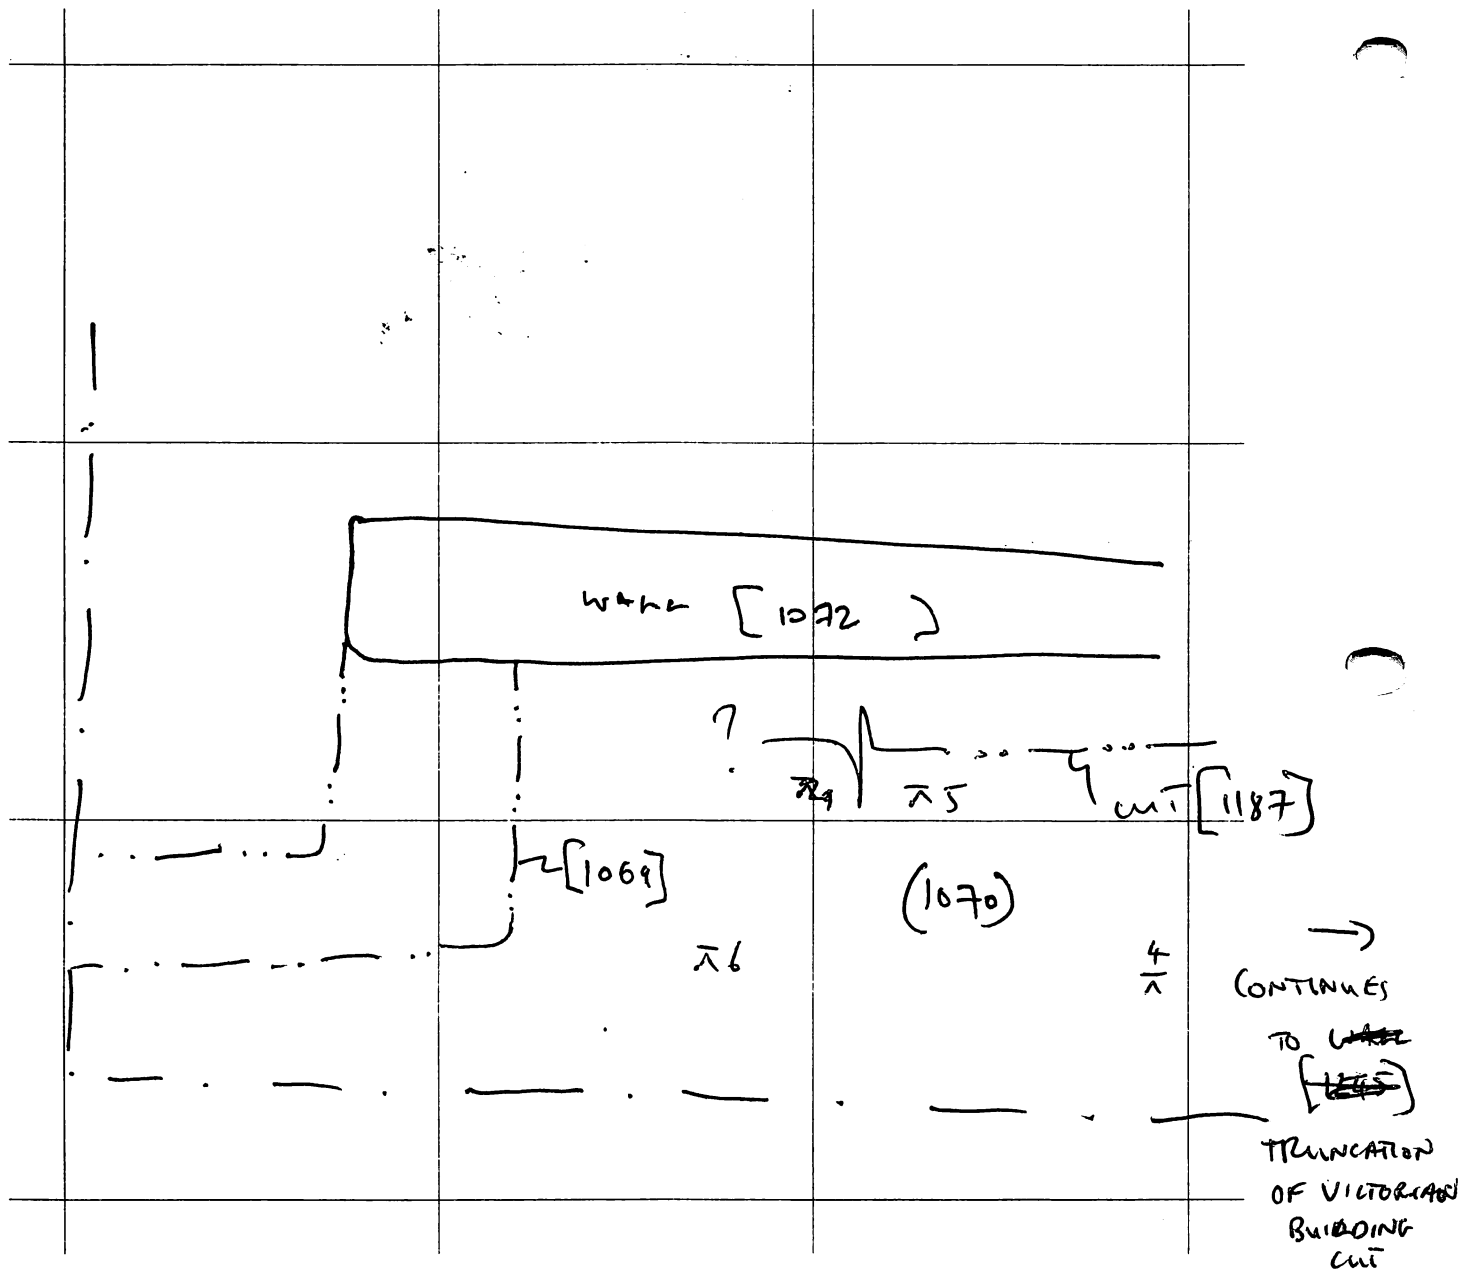 WALL [1072]
?
⊼5
CUT [1187]
[1069]
(1070)
⊼6
4
→
CONTINUES
TO
TRUNCATION
OF VICTORIAN
BUILDING
CUT